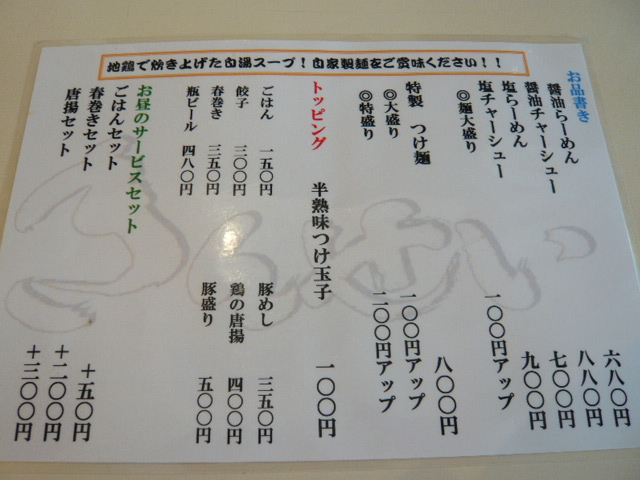 地鶏で炊き上げた白湯スープ！自家製麺をご賞味ください！！
お品書き
醤油らーめん 六八〇円
醤油チャーシュー 八八〇円
塩らーめん 七〇〇円
塩チャーシュー 九〇〇円
◎麺大盛り 一〇〇円アップ
特製 つけ麺 八〇〇円
◎大盛り 一〇〇円アップ
◎特盛り 二〇〇円アップ
トッピング 半熟味つけ玉子 一〇〇円
ごはん 一五〇円 豚めし 三五〇円
餃子 三〇〇円 鶏の唐揚 四〇〇円
春巻き 三五〇円 豚盛り 五〇〇円
瓶ビール 四八〇円
お昼のサービスセット
ごはんセット ＋一五〇円
春巻きセット ＋二〇〇円
唐揚セット ＋三〇〇円